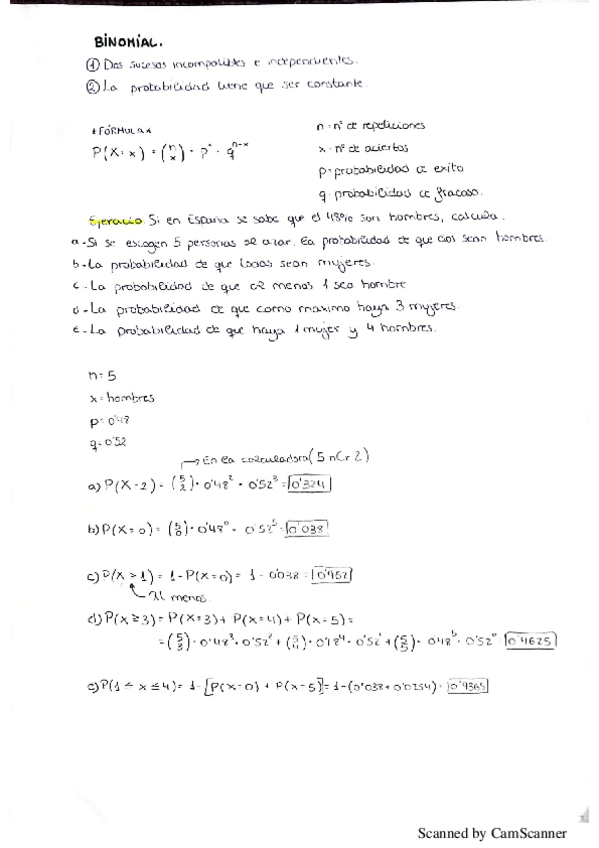 BINOMIAL.
① Dos sucesos incompatibles e independientes.
② La probabilidad tiene que ser constante.
* FÓRMULA *
P(X=x) = (n x) · pˣ · qⁿ⁻ˣ
n = nº de repeticiones
x = nº de aciertos
p = probabilidad de exito
q = probabilidad de fracaso.
Ejercicio. Si en España se sabe que el 48% son hombres, calcula.
a - Si se escogen 5 personas al azar. La probabilidad de que dos sean hombres.
b - La probabilidad de que todas sean mujeres.
c - La probabilidad de que al menos 1 sea hombre
d - La probabilidad de que como maximo haya 3 mujeres.
e - La probabilidad de que haya 1 mujer y 4 hombres.
n = 5
x = hombres
p = 0'48
q = 0'52
→ En la calculadora (5 nCr 2)
a) P(X=2) = (5 2) · 0'48² · 0'52³ = 0'324
b) P(X=0) = (5 0) · 0'48⁰ · 0'52⁵ = 0'038
c) P(X ≥ 1) = 1 - P(X=0) = 1 - 0'038 = 0'962
Al menos
d) P(X ≥ 3) = P(X=3) + P(X=4) + P(X=5) =
= (5 3) · 0'48³ · 0'52² + (5 4) · 0'48⁴ · 0'52¹ + (5 5) · 0'48⁵ · 0'52⁰ 0'4625
e) P(1 ≤ x ≤ 4) = 1 - [P(X=0) + P(X=5)] = 1 - (0'038 + 0'0254) = 0'9365
Scanned by CamScanner